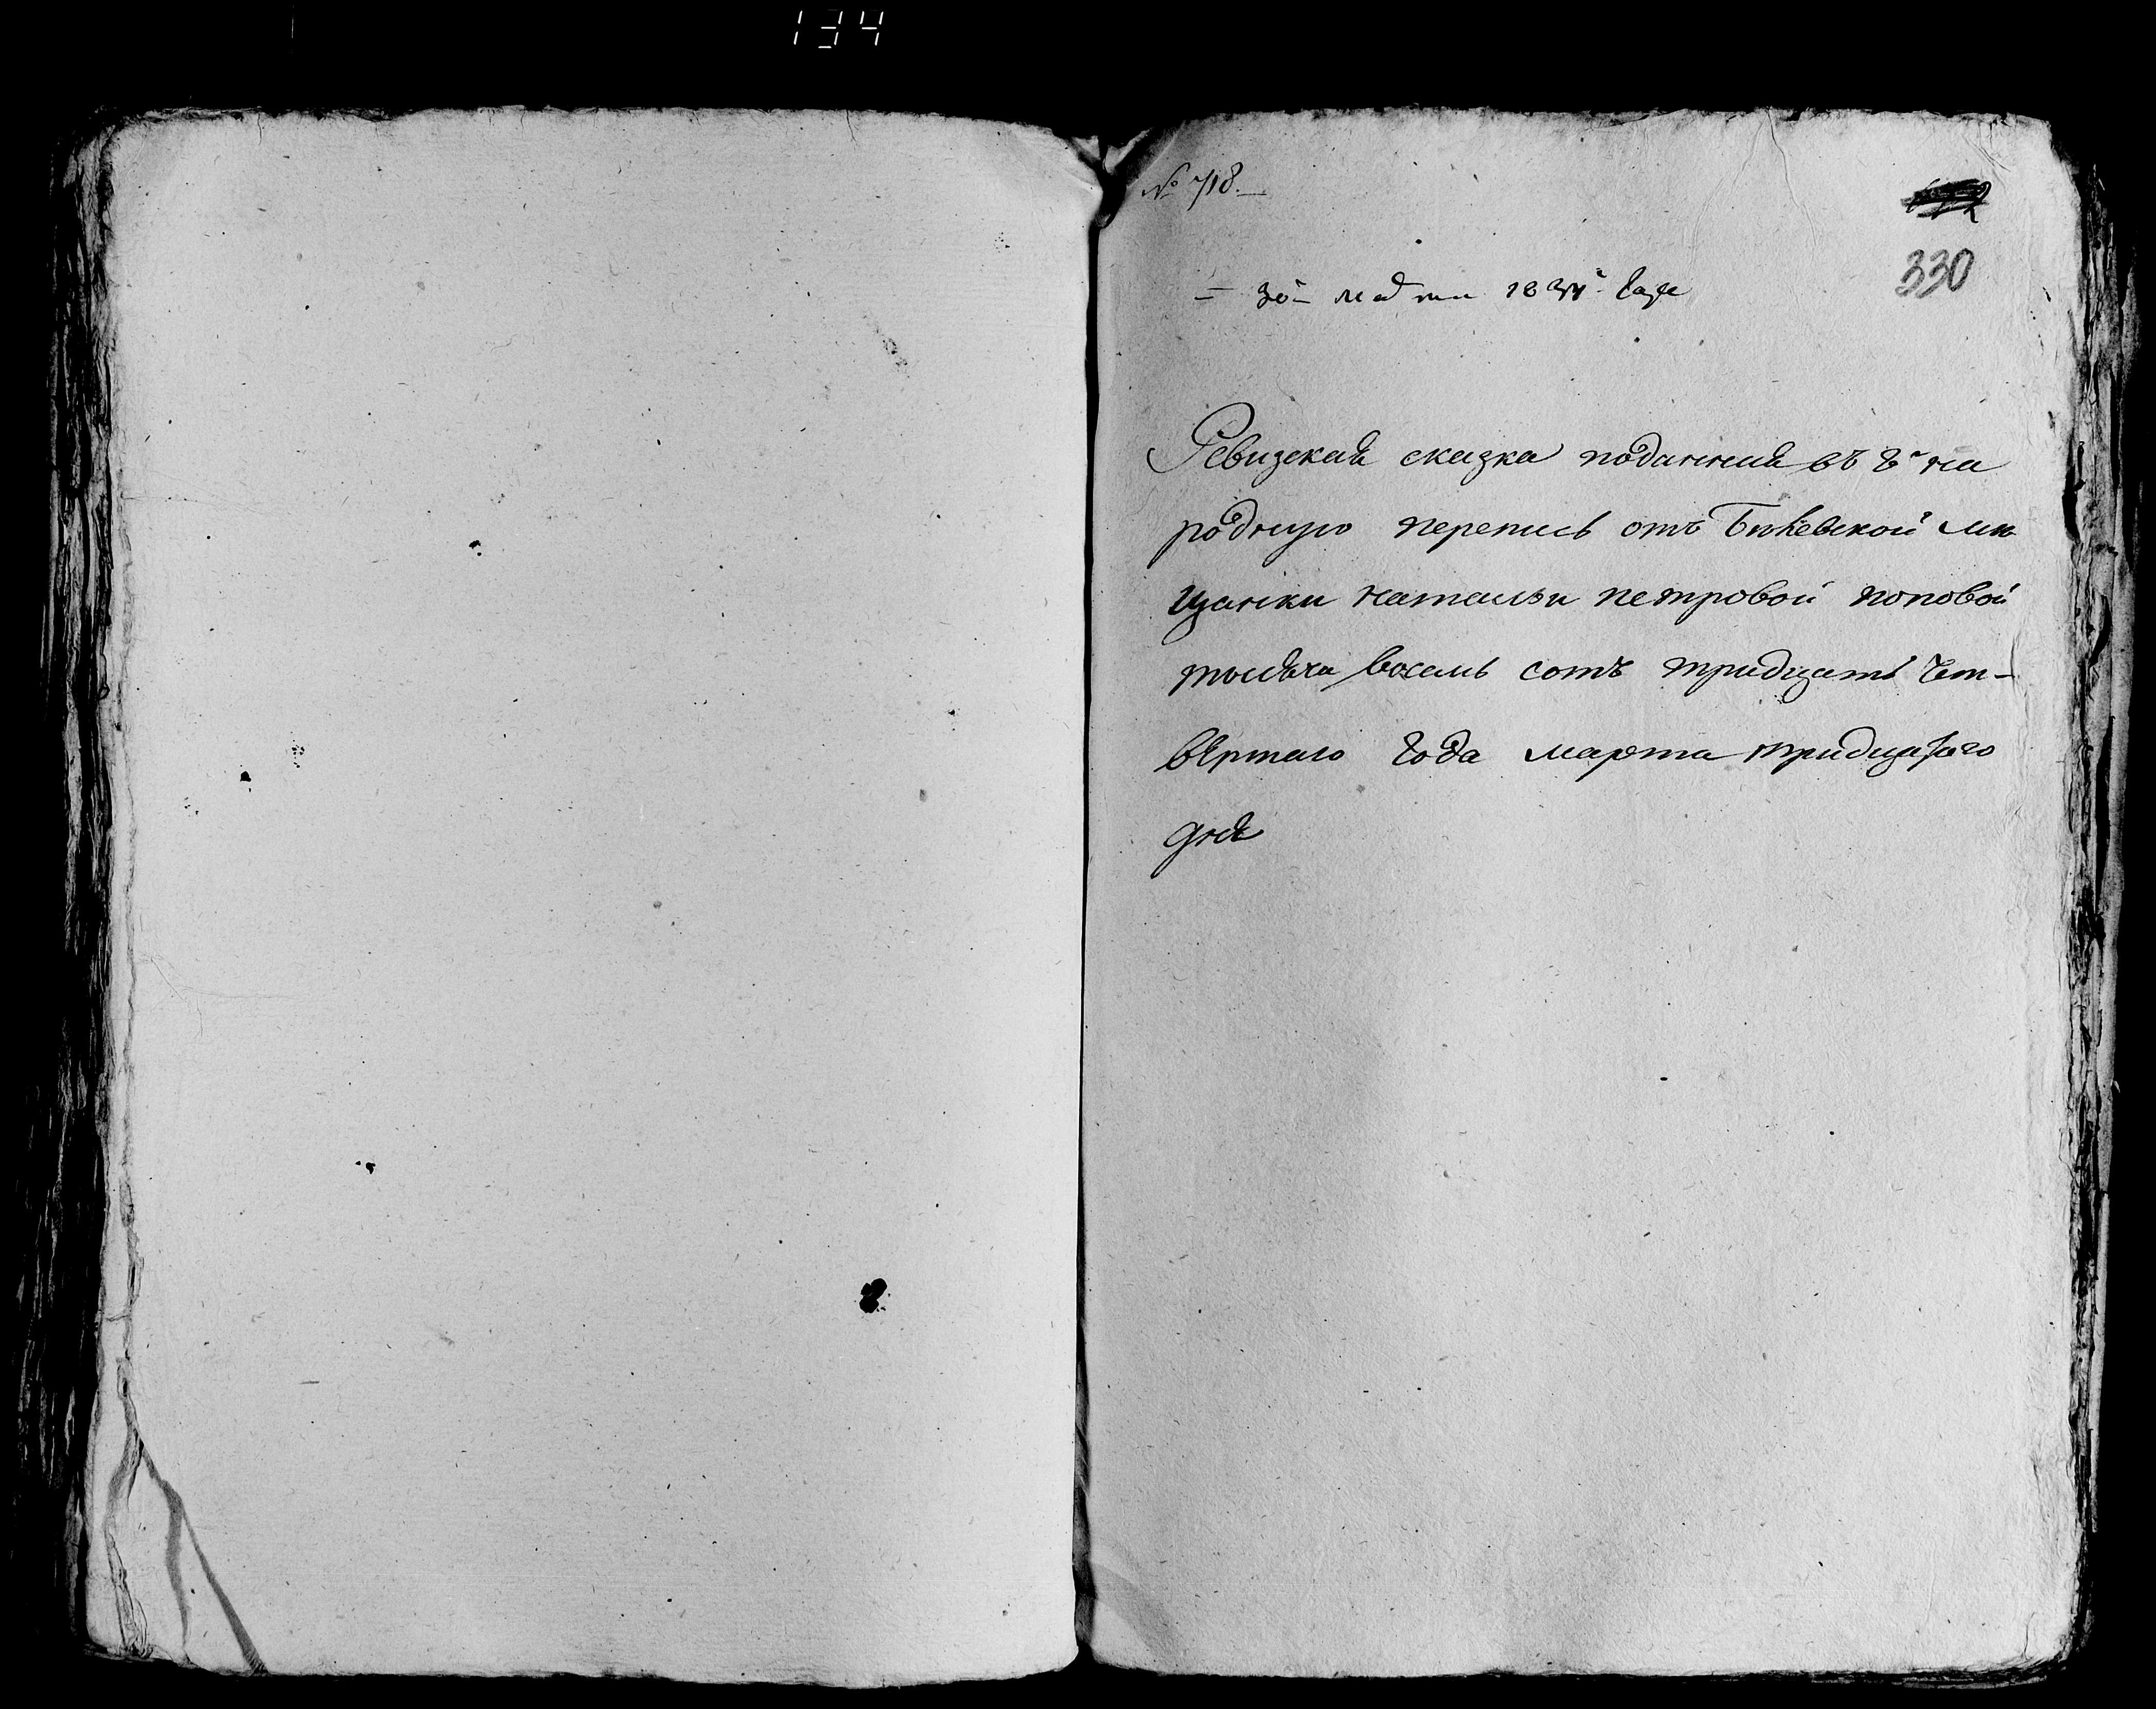 134
№ 718.
330
= 30го марта 1834го года
Ревизская сказка поданная въ 8ю на
родную перепись отъ мѣ
щанки натальи петровой поповой
тысяча восемь сотъ тридцать чет-
вертаго года марта тридцатаго
дня